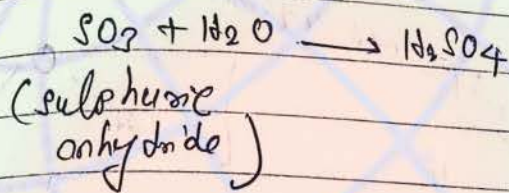 SO3 + H2O → H2SO4
(sulphuric
anhydride)